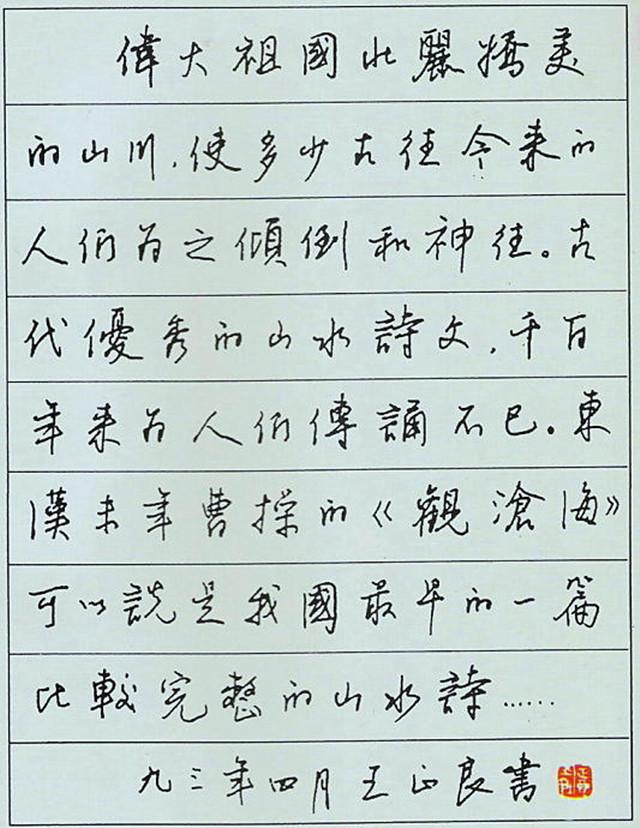 偉大祖國壯麗嬌美
的山川，使多少古往今来的
人们为之傾倒和神往。古
代優秀的山水詩文，千百
年来为人们傳誦不已。東
漢末年曹操的《觀滄海》
可以説是我國最早的一篇
比較完整的山水詩……
九三年四月王正良書